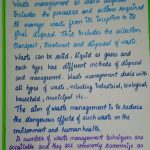 Waste management or waste disposal
includes the processes and actions required
to manage waste from its inception to its
final disposal. This includes the collection,
transport, treatment and disposal of waste.
Waste can be solid, liquid or gases and
each type has different methods of disposal
and management. Waste management deals with
all types of waste, including industrial, biological,
household, municipal etc..
The aim of waste management is to reduce
the dangerous effects of such waste on the
environment and human health.
A number of waste management techniques are
available and they are commonly summarize as